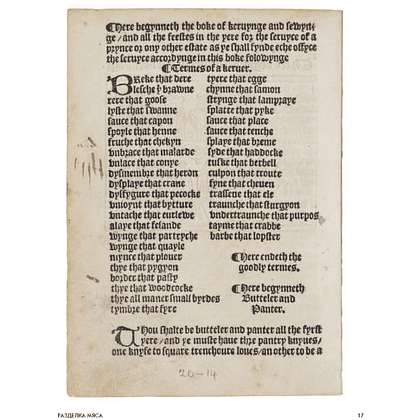 ¶Here begynneth the boke of keruynge and sewyn-
ge / and all the feestes in the yere for the seruyce of a
prynce or ony other estate as ye shall fynde eche offyce
the seruyce accordynge in this boke folowynge
¶Termes of a keruer.
BReke that dere
lesche yͭ brawne
rere that goose
lyfte that swanne
sauce that capon
spoyle that henne
fruche that chekyn
vnbrace that malarde
vnlace that conye
dysmembre that heron
dysplaye that crane
dysfygure that pecocke
vnioynt that bytture
vntache that curlewe
alaye that felande
wynge that partryche
wynge that quayle
mynce that plouer
thye that pygyon
border that pasty
thye that woodcocke
thye all maner small byrdes
tymbre that fyre
tyere that egge
chynne that samon
strynge that lampraye
splatte that pyke
sauce that place
sauce that tenche
splaye that breme
syde that haddocke
tuske that berbell
culpon that troute
fyne that cheuen
trassene that ele
traunche that sturgyon
vndertraunche that purpos
tayme that crabbe
barbe that lopster
¶Here endeth the
goodly termes.
¶Here begynneth
Butteler and
Panter.
THou shalte be butteler and panter all the fyrst
yere / and ye muste haue thre pantry knyues /
one knyfe to square trenchoure loues / an other to be a
20-14
РАЗДЕЛКА МЯСА
17